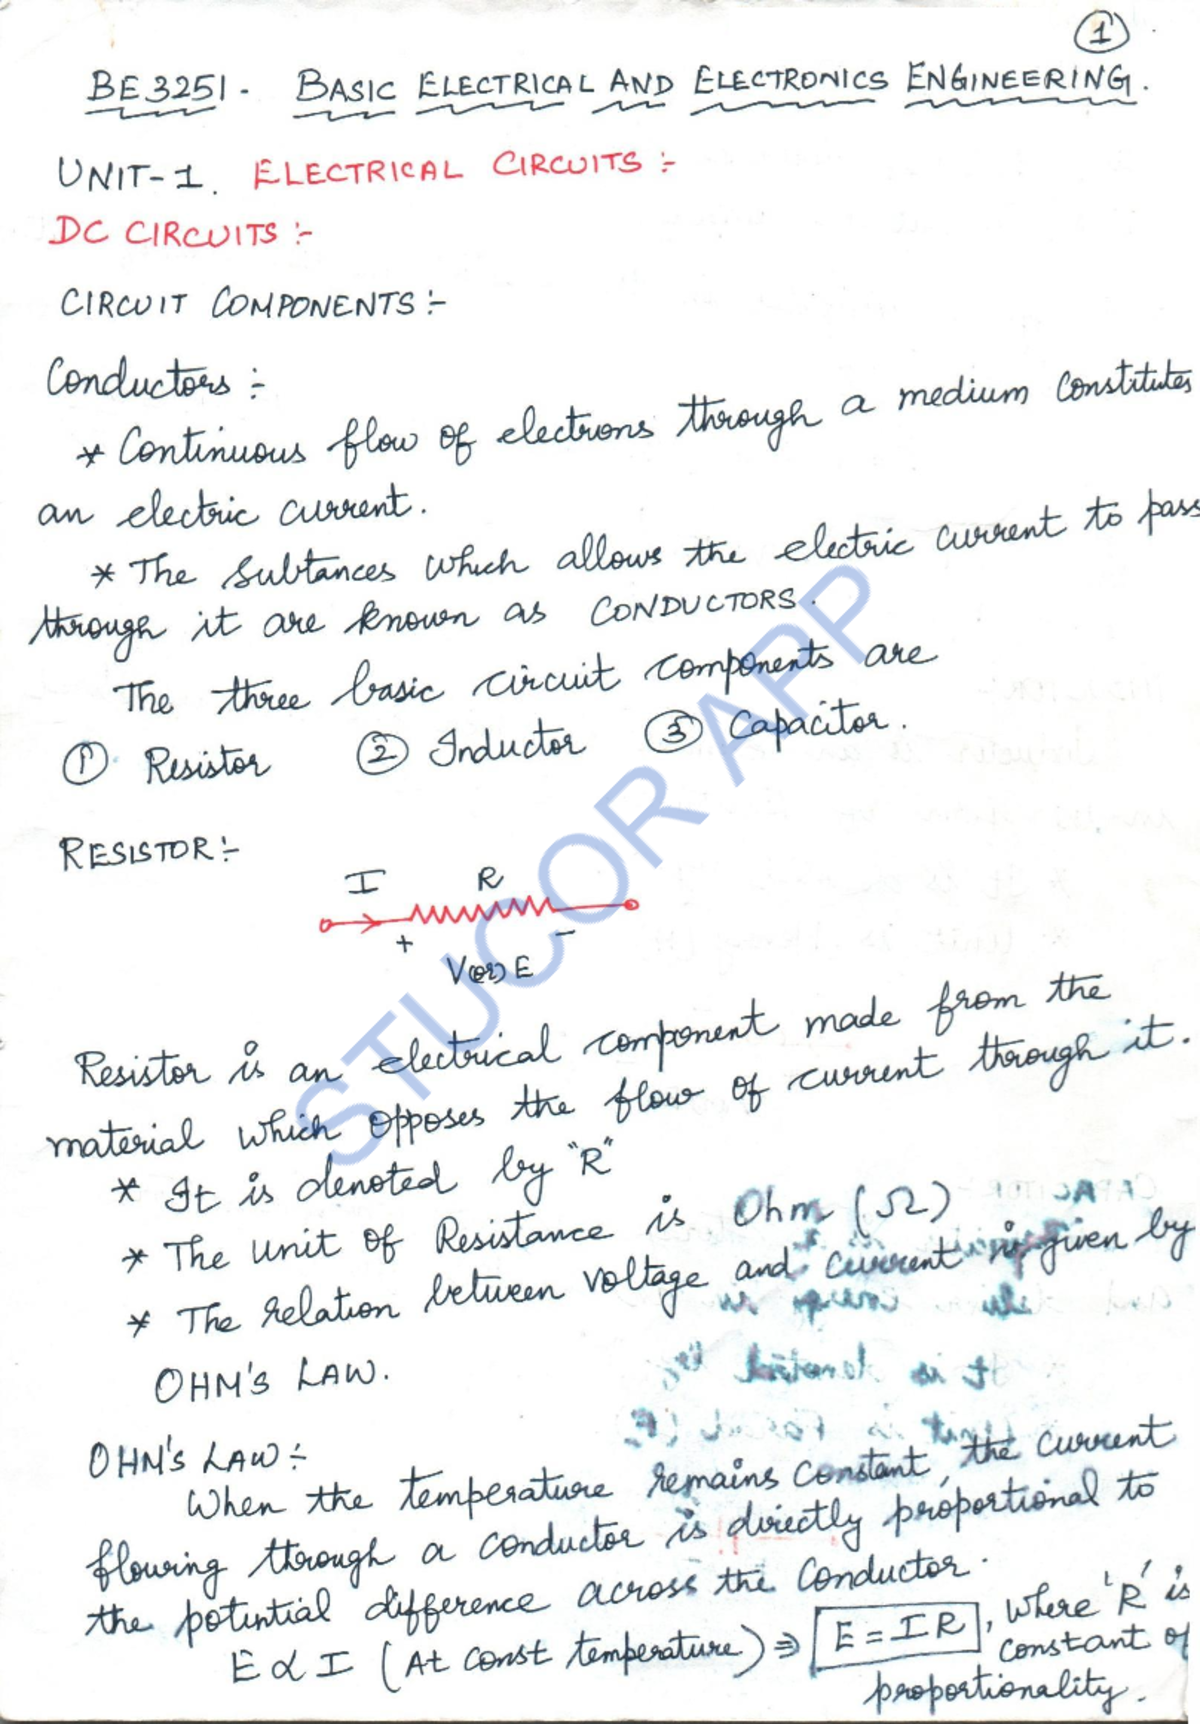 1
BE3251 - BASIC ELECTRICAL AND ELECTRONICS ENGINEERING.
UNIT-1. ELECTRICAL CIRCUITS :-
DC CIRCUITS :-
CIRCUIT COMPONENTS :-
Conductors :-
* Continuous flow of electrons through a medium constitutes
an electric current.
* The Subtances which allows the electric current to pass
through it are known as CONDUCTORS.
The three basic circuit components are
① Resistor ② Inductor ③ Capacitor.
RESISTOR :-
I R
+ -
V (or) E
Resistor is an electrical component made from the
material which opposes the flow of current through it.
* It is denoted by "R"
* The unit of Resistance is Ohm (Ω)
* The relation between voltage and current is given by
OHM'S LAW.
OHM'S LAW :-
When the temperature remains constant, the current
flowing through a conductor is directly proportional to
the potential difference across the conductor.
E ∝ I (At const temperature) ⇒ E = IR, where 'R' is
constant of
proportionality.
STUCOR APP